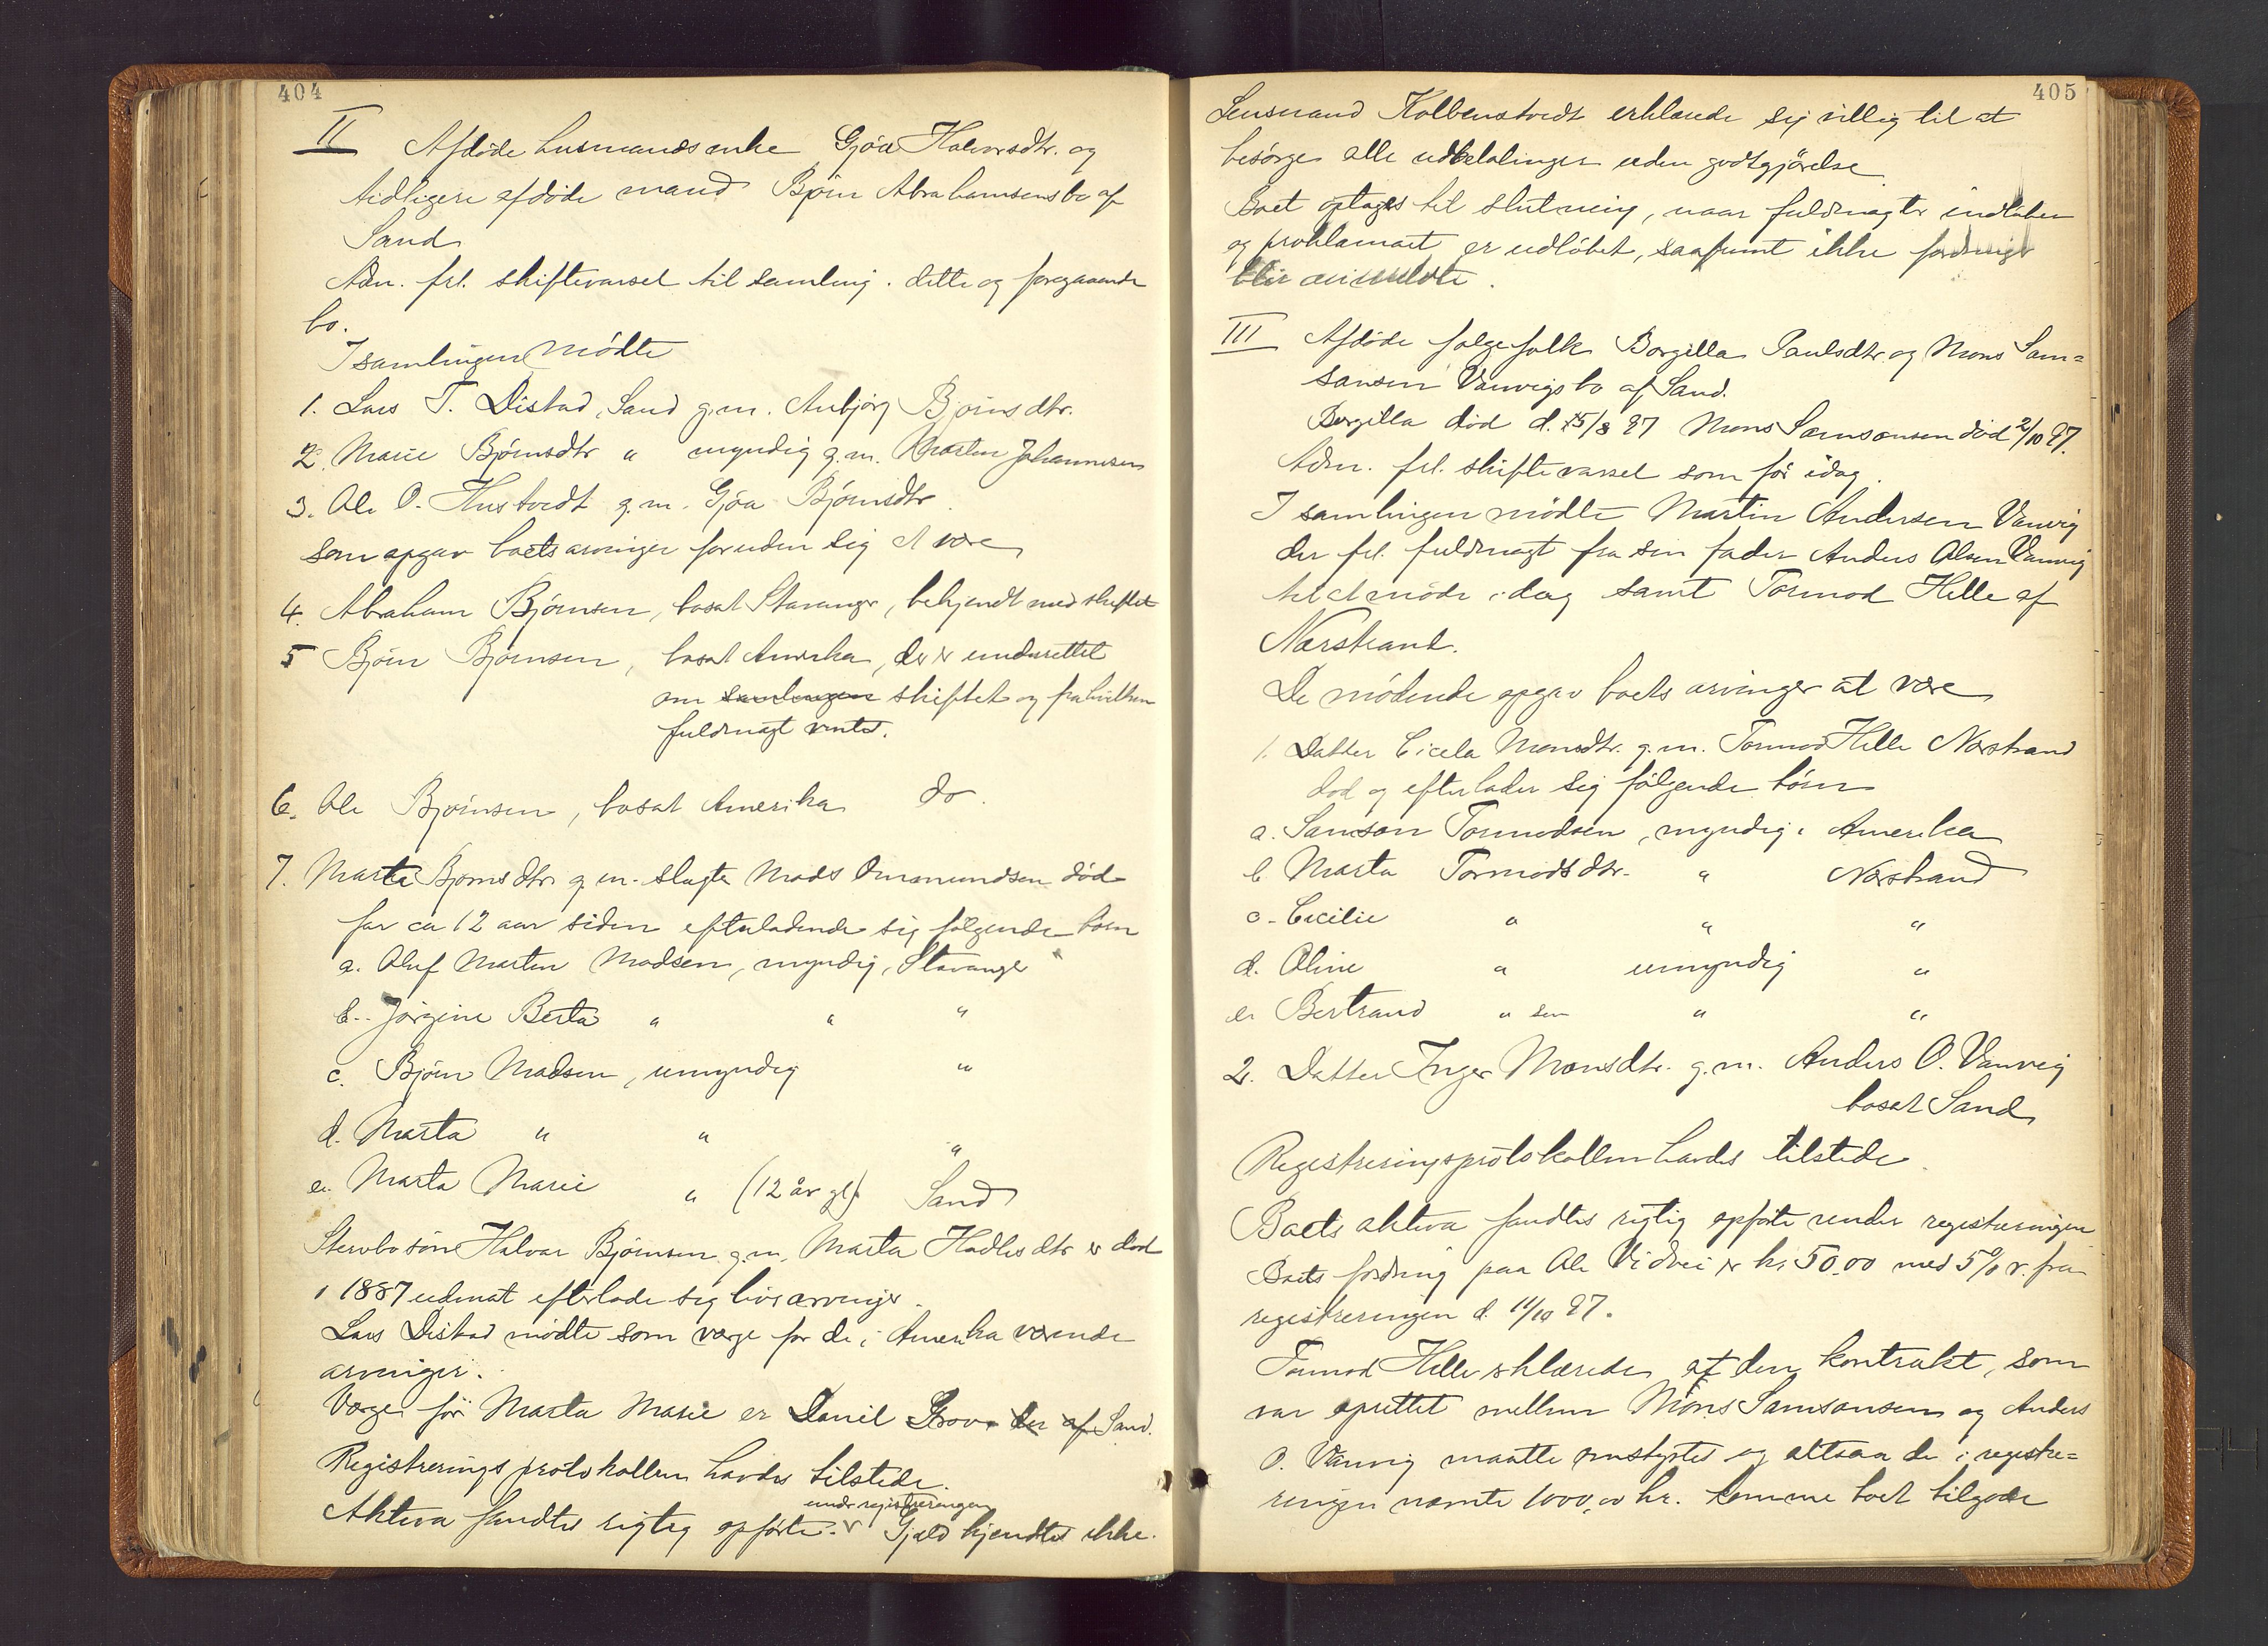 404
II Afdøde husmandsenke Gjøa Halvorsdtr. og
tidligere afdøde mand Bjørn Abrahamsens bo af
Sand
Adm. frl. skiftevarsel til samling i dette og foregaaende
bo.
I samlingen mødte
1. Lars T. Distad, Sand g.m. Anbjørg Bjørnsdtr.
2. Marie Bjørnsdtr " myndig g.m. Martin Johannesen
3. Ole O. Hustvedt g.m. Gjøa Bjørnsdtr.
som opgav boets arvinger foruden sig at være
4. Abraham Bjørnsen, bosat Stavanger, bekjendt med skiftet
5 Bjørn Bjørnsen, bosat Amerika, der er underrettet
om samlingen skiftet og fra hvilken
fuldmagt ventes.
6. Ole Bjørnsen, bosat Amerika do.
7. Marta Bjørnsdtr. g.m. slagter Mads Ommundsen død
for ca 12 aar siden efterladende sig følgende børn
a. Oluf Martin Madsen, myndig, Stavanger
b. Jørgine Berta " " "
c. Bjørn Madsen, umyndig "
d. Marta " " "
e. Marta Marie " (12 år gl). Sand
Stervbo søn Halvor Bjørnsen g.m. Marta Hadlesdtr er død
i 1887 uden at efterlade sig livsarvinger.
Lars Distad mødte som værge for de i Amerika værende
arvinger.
Værge for Marta Marie er Daniel Grov. der af Sand.
Registreringsprotokollen havdes tilstede.
under registreringen
Aktiva fandtes rigtig opførte. v Gjæld kjendtes ikke.
405
Lensmand Kolbenstvedt erklærede sig villig til at
besørge alle udbetalinger uden godtgjørelse.
Boet optages til slutning, naar fuldmagter indløber
og proklamaet er udløbet, saafremt ikke fordringer
blir anmeldte.
III Afdøde følgefolk Borgilla Paulsdtr. og Mons Sam=
sonsen Vanvigs bo af Sand.
Borgilla død d. 15/8 97 Mons Samsonsen død 2/10 97.
Adm. frl. skiftevarsel som før idag.
I samlingen mødte Martin Andersen Vanvig
der frl. fuldmagt fra sin fader Anders Olsen Vanvig
til at møde idag samt Tormod Helle af
Nærstrand.
De mødende opgav boets arvinger at være
1. Datter Cicela Monsdtr. g.m. Tormod Helle Nærstrand
død og efterlader sig følgende børn
a. Samson Tormodsen, myndig i Amerika
b. Marta Tormodsdtr. " Nærstrand
c. Cecilie " " "
d. Oline " umyndig "
e. Bertrand " sen " "
2. Datter Inger Monsdtr. g.m. Anders O. Vanvig
bosat Sand
Registreringsprotokollen havdes tilstede.
Boets aktiva fandtes rigtig opførte under registreringen
Boets fordring paa Ole Vidvei er kr. 50.00 med 5% r. fra
registreringen d. 11/10 97.
Tormod Helle erklærede at den kontrakt, som
var oprettet mellem Mons Samsonsen og Anders
O. Vanvig maatte omstyrtes og altsaa de i registre=
ringen nævnte 1000,00 kr. komme boet tilgode